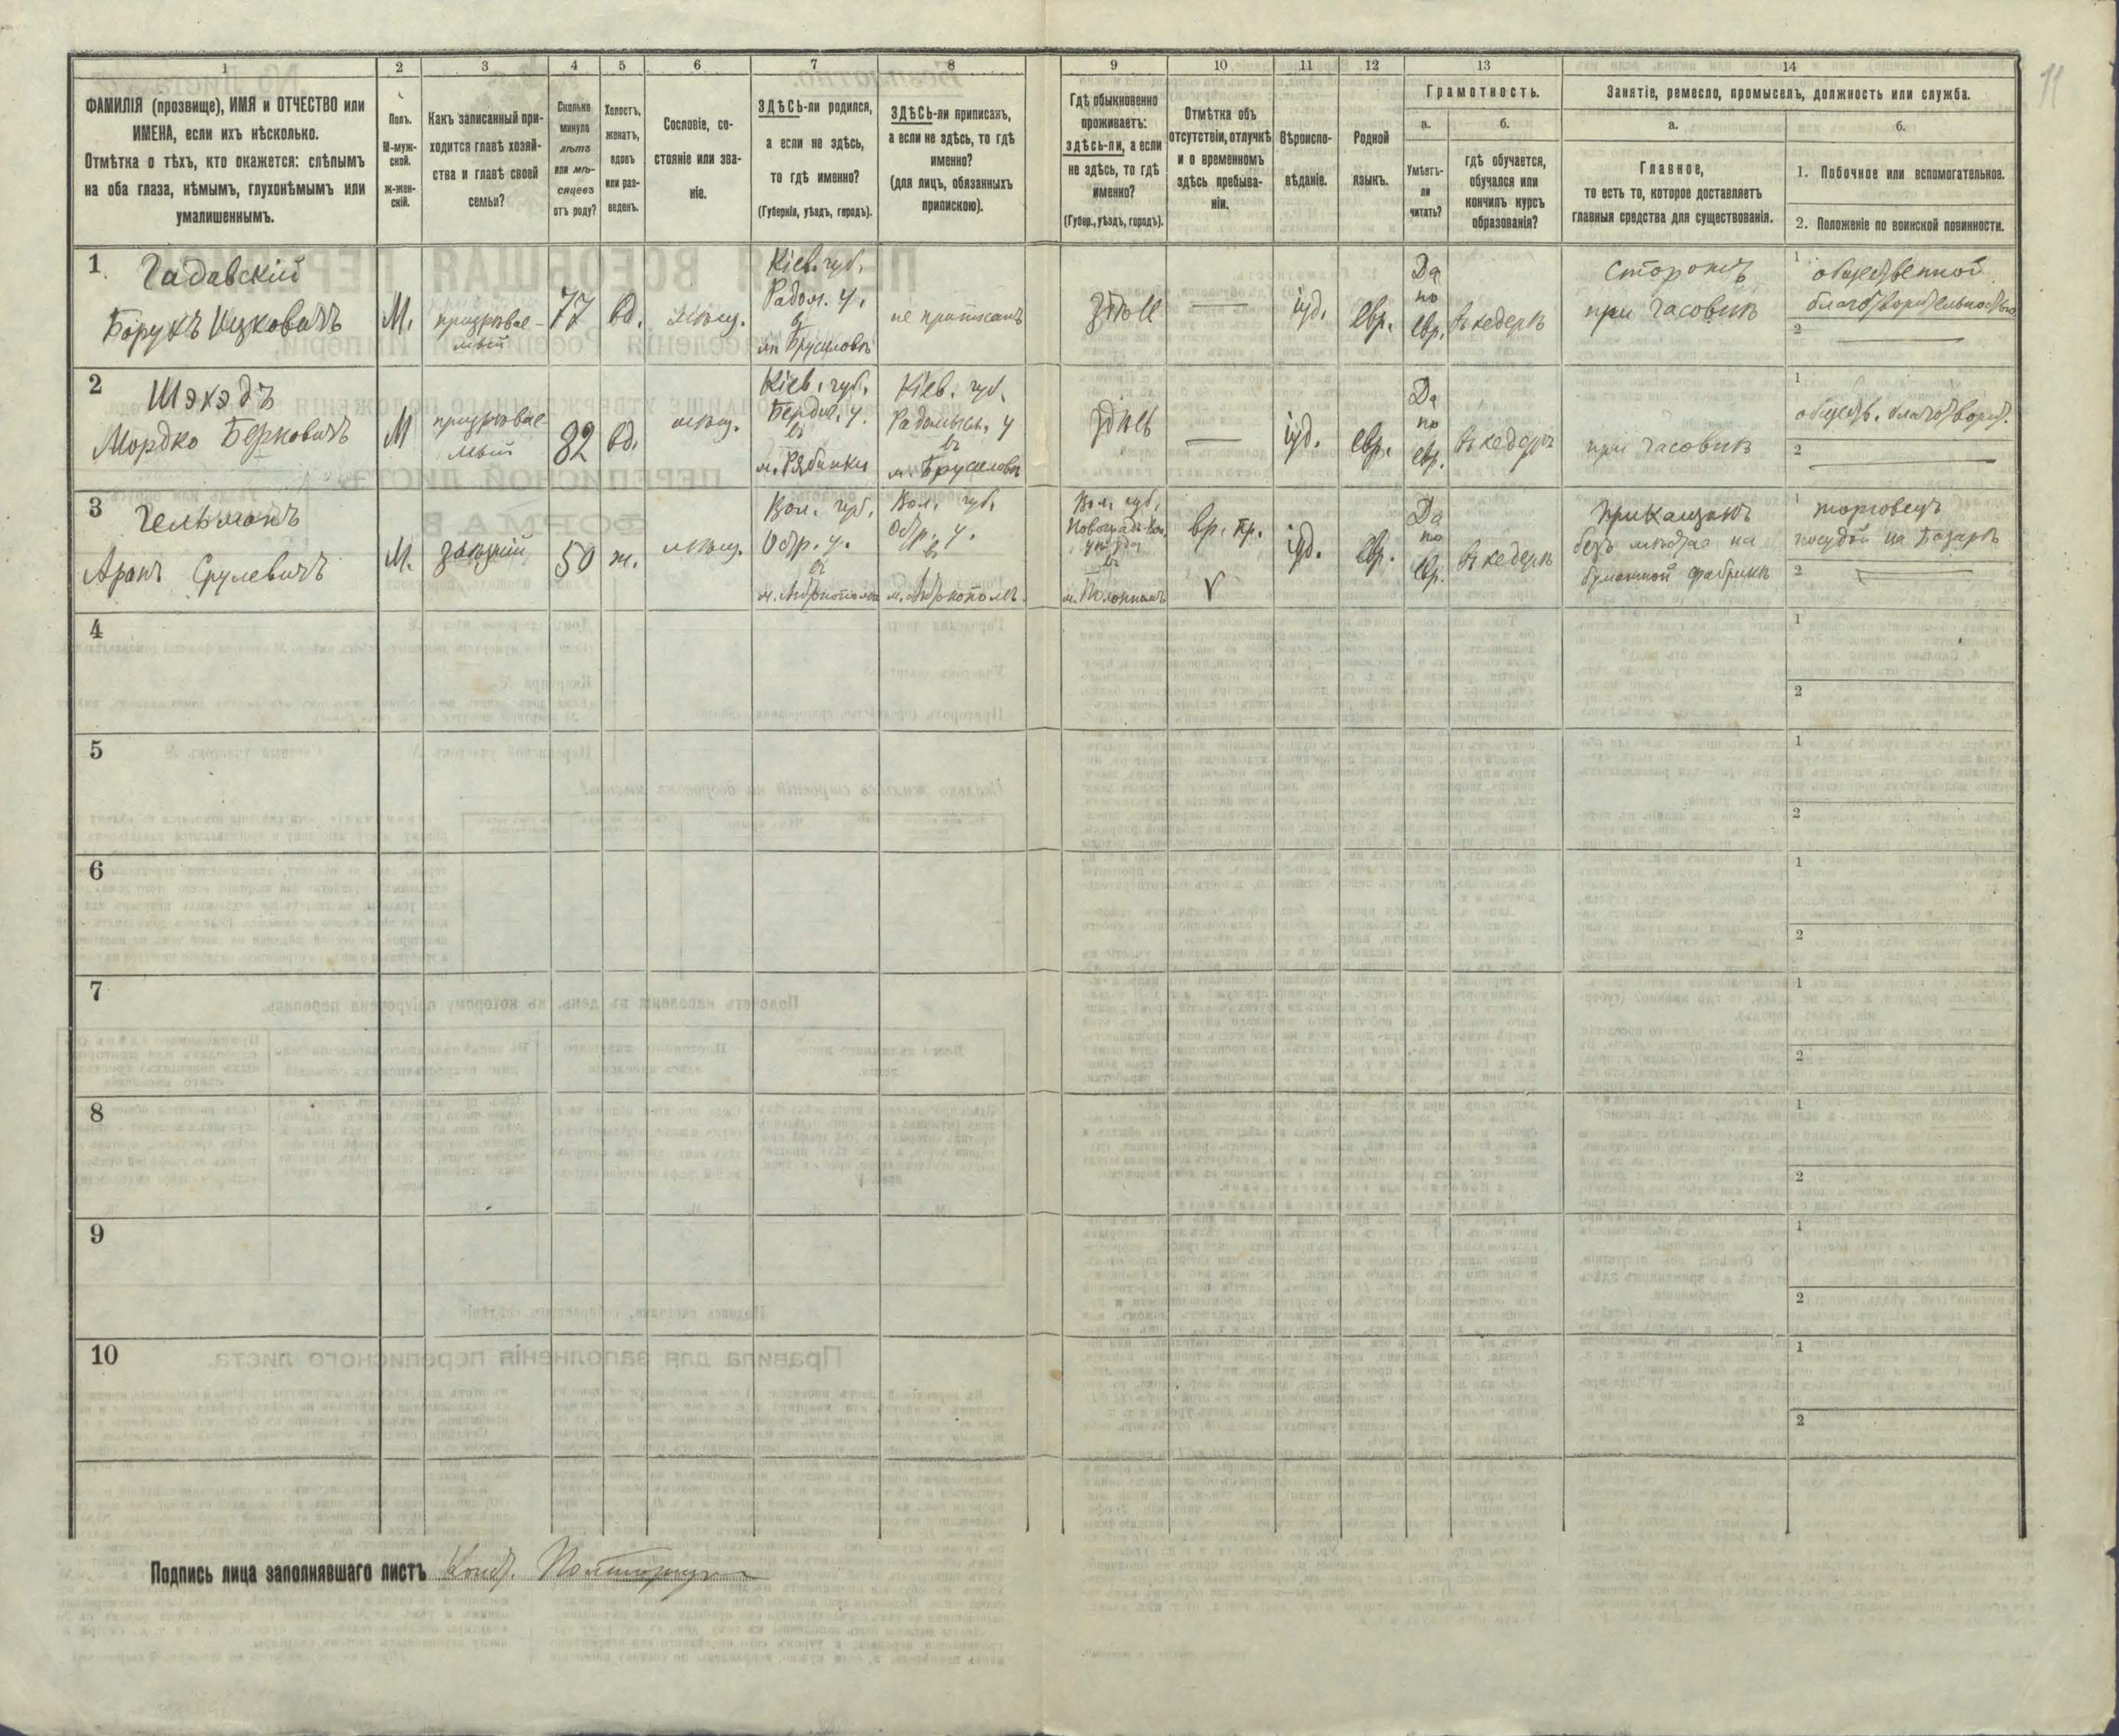 11
1 2 3 4 5 6 7 8 9 10 11 12 13 14
ФАМИЛІЯ (прозвище), ИМЯ и ОТЧЕСТВО или
ИМЕНА, если ихъ нѣсколько.
Отмѣтка о тѣхъ, кто окажется: слѣпымъ
на оба глаза, нѣмымъ, глухонѣмымъ или
умалишеннымъ.
Полъ.
М-муж-
ской.
ж-жен-
скій.
Какъ записанный при-
ходится главѣ хозяй-
ства и главѣ своей
семьи?
Сколько
минуло
лѣтъ
или мѣ-
сяцевъ
отъ роду?
Холостъ,
женатъ,
вдовъ
или раз-
веденъ.
Сословіе, со-
стояніе или зва-
ніе.
ЗДѢСЬ-ли родился,
а если не здѣсь,
то гдѣ именно?
(Губернія, уѣздъ, городъ).
ЗДѢСЬ-ли приписанъ,
а если не здѣсь, то гдѣ
именно?
(для лицъ, обязанныхъ
припискою).
Гдѣ обыкновенно
проживаетъ:
здѣсь-ли, а если
не здѣсь, то гдѣ
именно?
(Губер., уѣздъ, городъ).
Отмѣтка объ
отсутствіи, отлучкѣ
и о временномъ
здѣсь пребыва-
ніи.
Вѣроиспо-
вѣданіе.
Родной
языкъ.
Грамотность.
а.
Умѣетъ-
ли
читать?
б.
гдѣ обучается,
обучался или
кончилъ курсъ
образованія?
Занятіе, ремесло, промыселъ, должность или служба.
а.
Главное,
то есть то, которое доставляетъ
главныя средства для существованія.
б.
1. Побочное или вспомогательное.
2. Положеніе по воинской повинности.
1.
Гадавскій
Борухъ Ицковичъ
М.
призрѣвае-
мый
77
вд.
мѣщ.
Кіев. губ.
Радом. у.
в
м. Брусиловѣ
не приписанъ
здѣсь
—
іуд.
евр.
Да
по
евр.
въ хедерѣ
Сторожъ
при часовнѣ
1
общественной
благотворительностью
2
2
Шэхэдъ
Мордко Берковичъ
М
призрѣвае-
мый
82
вд.
мѣщ.
Кіев. губ.
Бердич. у.
въ
Кіев. губ.
Радомысл. у
въ
м. Брусиловѣ
здѣсь
—
іуд.
евр.
Да
по
евр.
въ хедерѣ
при часовнѣ
1
обществ. благотворит.
2
3
Гельманъ
Аронъ Срулевичъ
М.
заѣзжій
50
ж.
мѣщ.
Вол. губ.
Остр. у.
в
Вол. губ.
Остр. у.
в
Вол. губ.
Новоградъ-Вол.
уѣзда
въ
м. Полонномъ
вр. пр.
V
іуд.
евр.
Да
по
евр.
въ хедерѣ
Прикащикъ
безъ мѣста на
бумажной фабрикѣ
1
торговецъ
посудой на базарѣ
2
4
1
2
5
1
2
6
1
2
7
1
2
8
1
2
9
1
2
10
1
2
Подпись лица заполнявшаго листъ